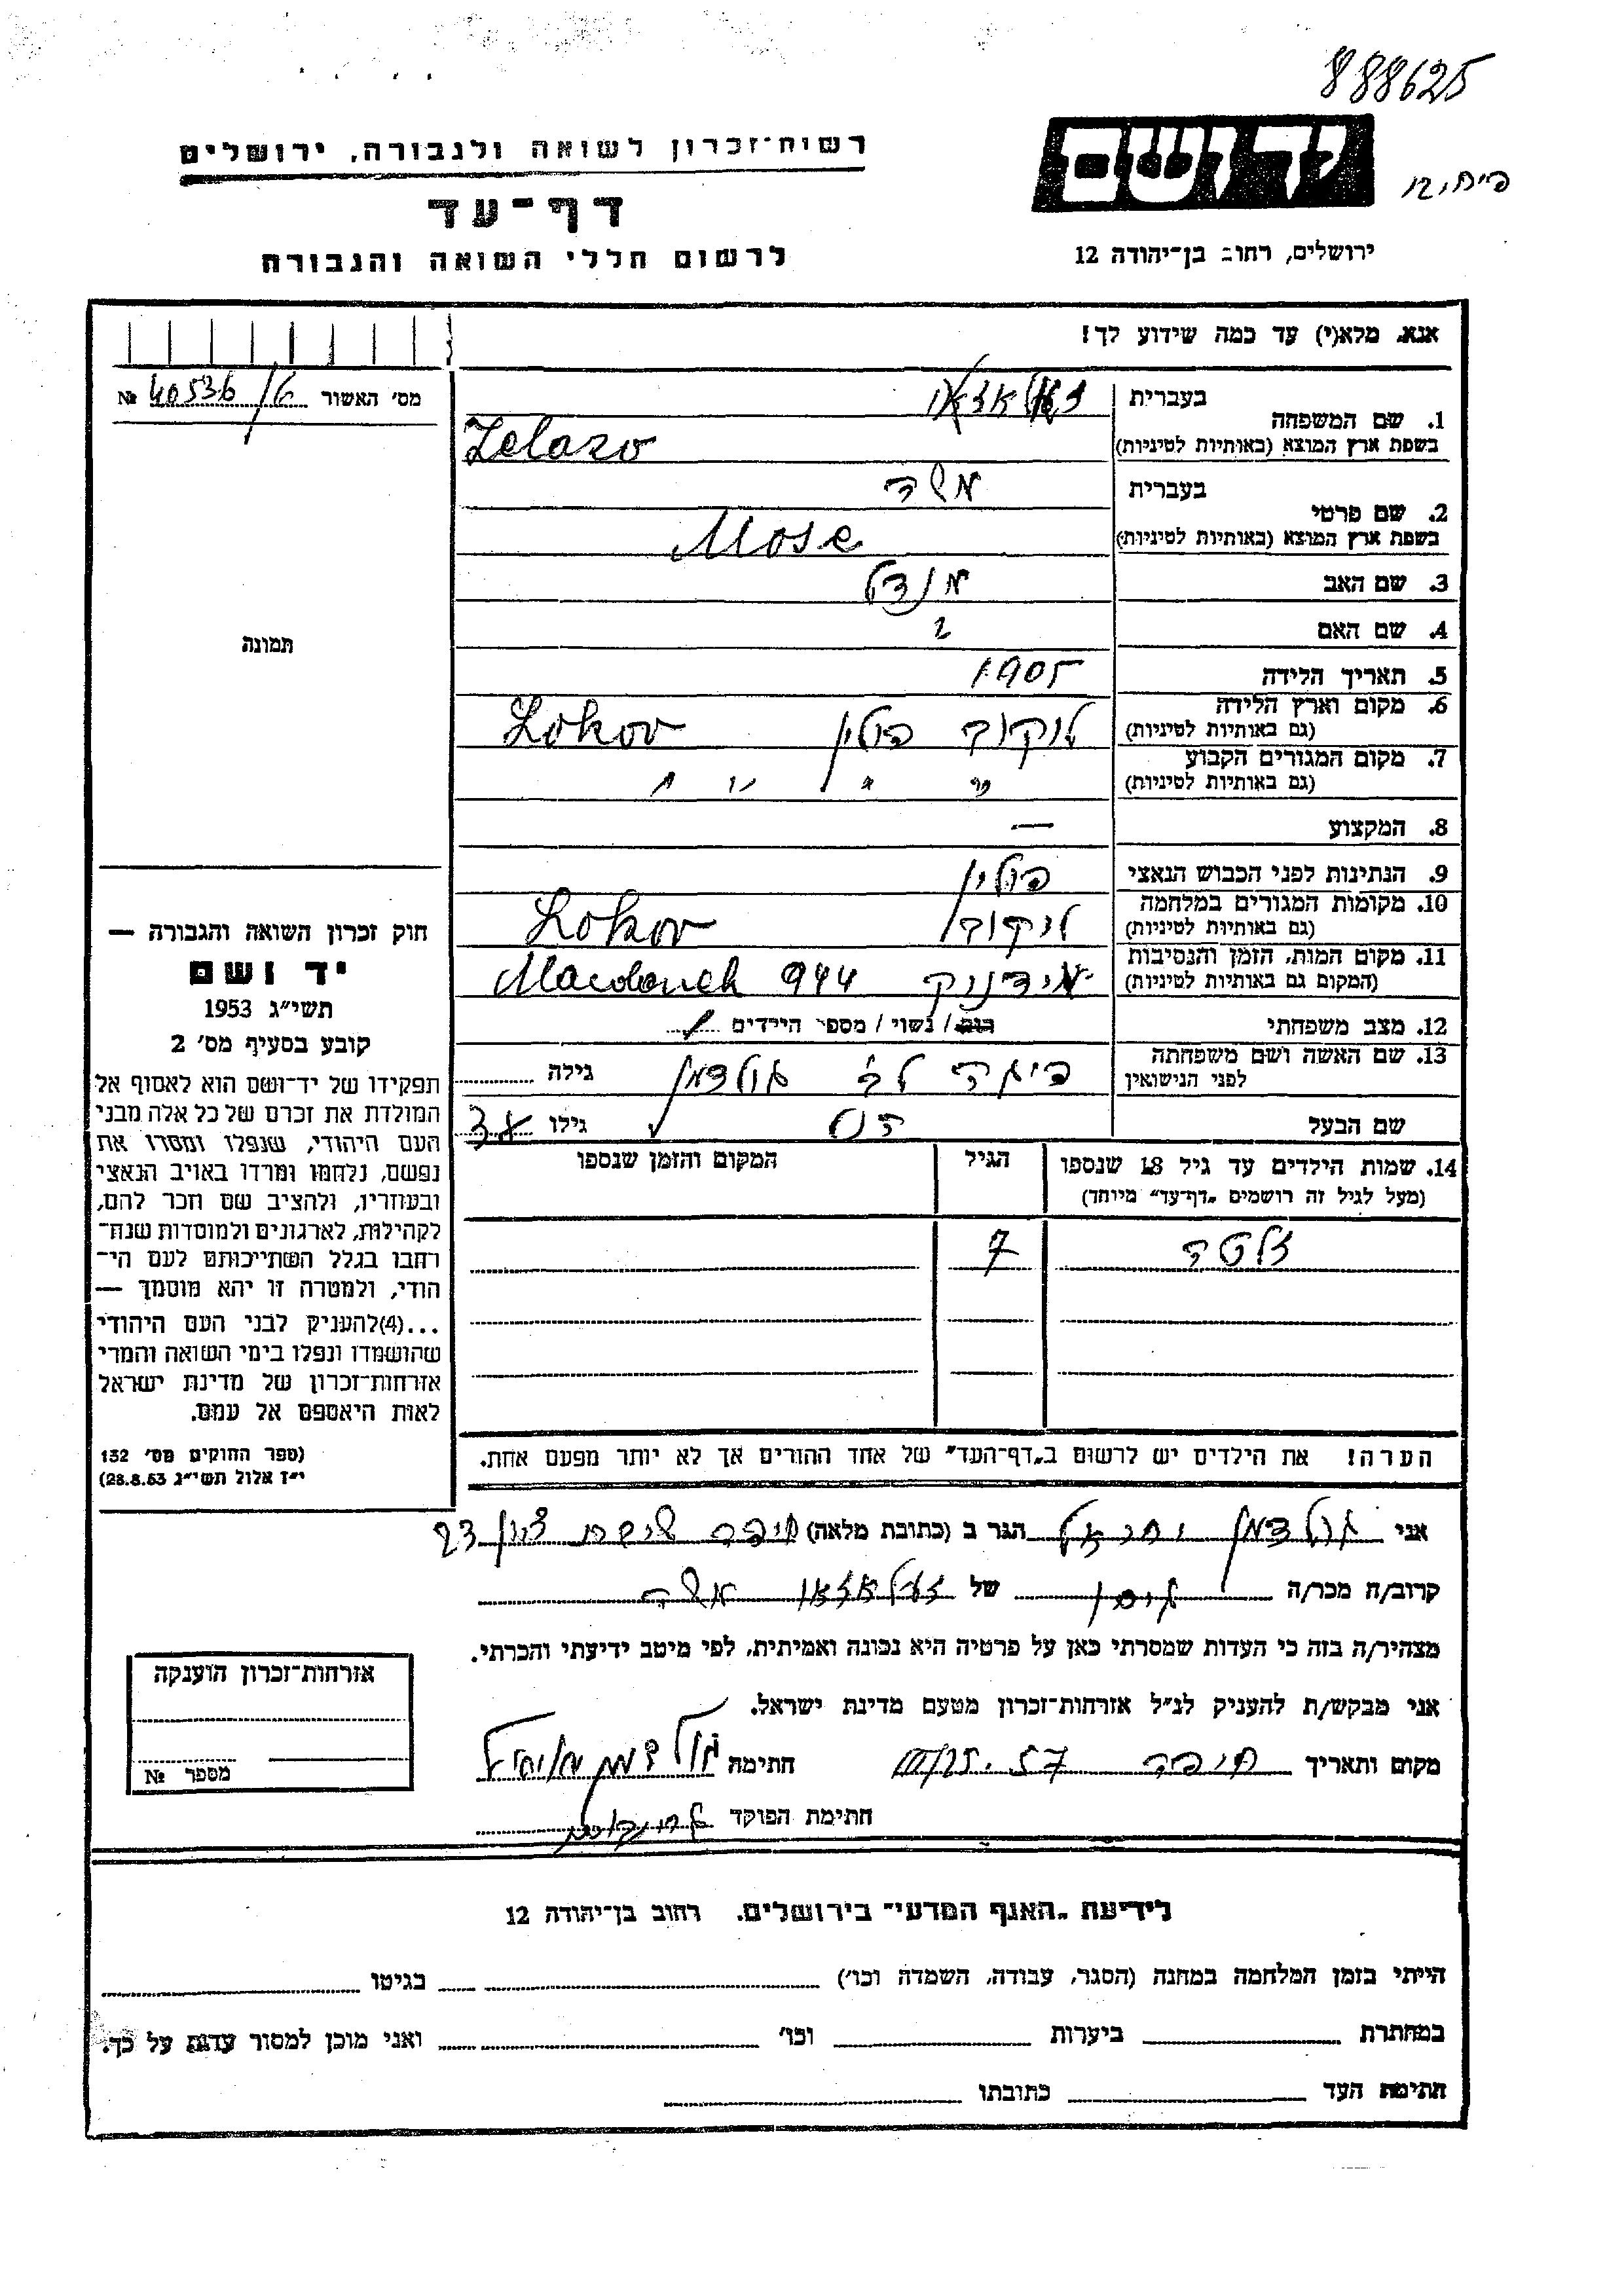 888625
רשות־זכרון לשואה ולגבורה, ירושלים
יד ושם
דף־עד
לרשום חללי השואה והגבורה
ירושלים, רחוב בן־יהודה 12
אנא, מלא(י) עד כמה שידוע לך!
מס' האשור 40536/6 №
1. שם המשפחה
בעברית
בשפת ארץ המוצא (באותיות לטיניות) Zelazo
2. שם פרטי
בעברית משה
בשפת ארץ המוצא (באותיות לטיניות) Mose
3. שם האב מנדל
4. שם האם ?
5. תאריך הלידה 1905
6. מקום וארץ הלידה (גם באותיות לטיניות) לוקוב פולין Lokov
7. מקום המגורים הקבוע (גם באותיות לטיניות) " " " "
8. המקצוע —
9. הנתינות לפני הכבוש הנאצי פולין
10. מקומות המגורים במלחמה (גם באותיות לטיניות) לוקוב Lokov
11. מקום המות, הזמן והנסיבות (המקום גם באותיות לטיניות) מידנוק 944
12. מצב משפחתי רווק / נשוי / מספר הילדים 1
13. שם האשה ושם משפחתה לפני הנישואין גולדמן גילה
שם הבעל גילו
14. שמות הילדים עד גיל 18 שנספו
(מעל לגיל זה רושמים „דף־עד" מיוחד)
הגיל
המקום והזמן שנספו
זלטה 7
הערה! את הילדים יש לרשום ב„דף־העד" של אחד ההורים אך לא יותר מפעם אחת.
תמונה
חוק זכרון השואה והגבורה —
יד ושם
תשי"ג 1953
קובע בסעיף מס' 2
תפקידו של יד־ושם הוא לאסוף אל
המולדת את זכרם של כל אלה מבני
העם היהודי, שנפלו ומסרו את
נפשם, נלחמו ומרדו באויב הנאצי
ובעוזריו, ולהציב שם וזכר להם,
לקהילות, לארגונים ולמוסדות שנח־
רבו בגלל השתייכותם לעם הי־
הודי, ולמטרה זו יהא מוסמך —
...(4)להעניק לבני העם היהודי
שהושמדו ונפלו בימי השואה והמרי
אזרחות־זכרון של מדינת ישראל
לאות היאספם אל עמם.
(ספר החוקים מס' 132
י"ז אלול תשי"ג 28.8.53)
אני גולדמן הגר ב (כתובת מלאה) חיפה
קרוב/ה מכר/ה גיסו של זעלאזאו משה
מצהיר/ה בזה כי העדות שמסרתי כאן על פרטיה היא נכונה ואמיתית, לפי מיטב ידיעתי והכרתי.
אני מבקש/ת להעניק לנ"ל אזרחות־זכרון מטעם מדינת ישראל.
מקום ותאריך חיפה חתימה
חתימת הפוקד
אזרחות־זכרון הוענקה
מספר №
לידיעת „האגף המדעי" בירושלים. רחוב בן־יהודה 12
הייתי בזמן המלחמה במחנה (הסגר, עבודה, השמדה וכו') בגיטו
במחתרת ביערות וכו' ואני מוכן למסור עדות על כך.
חתימת העד כתובתו